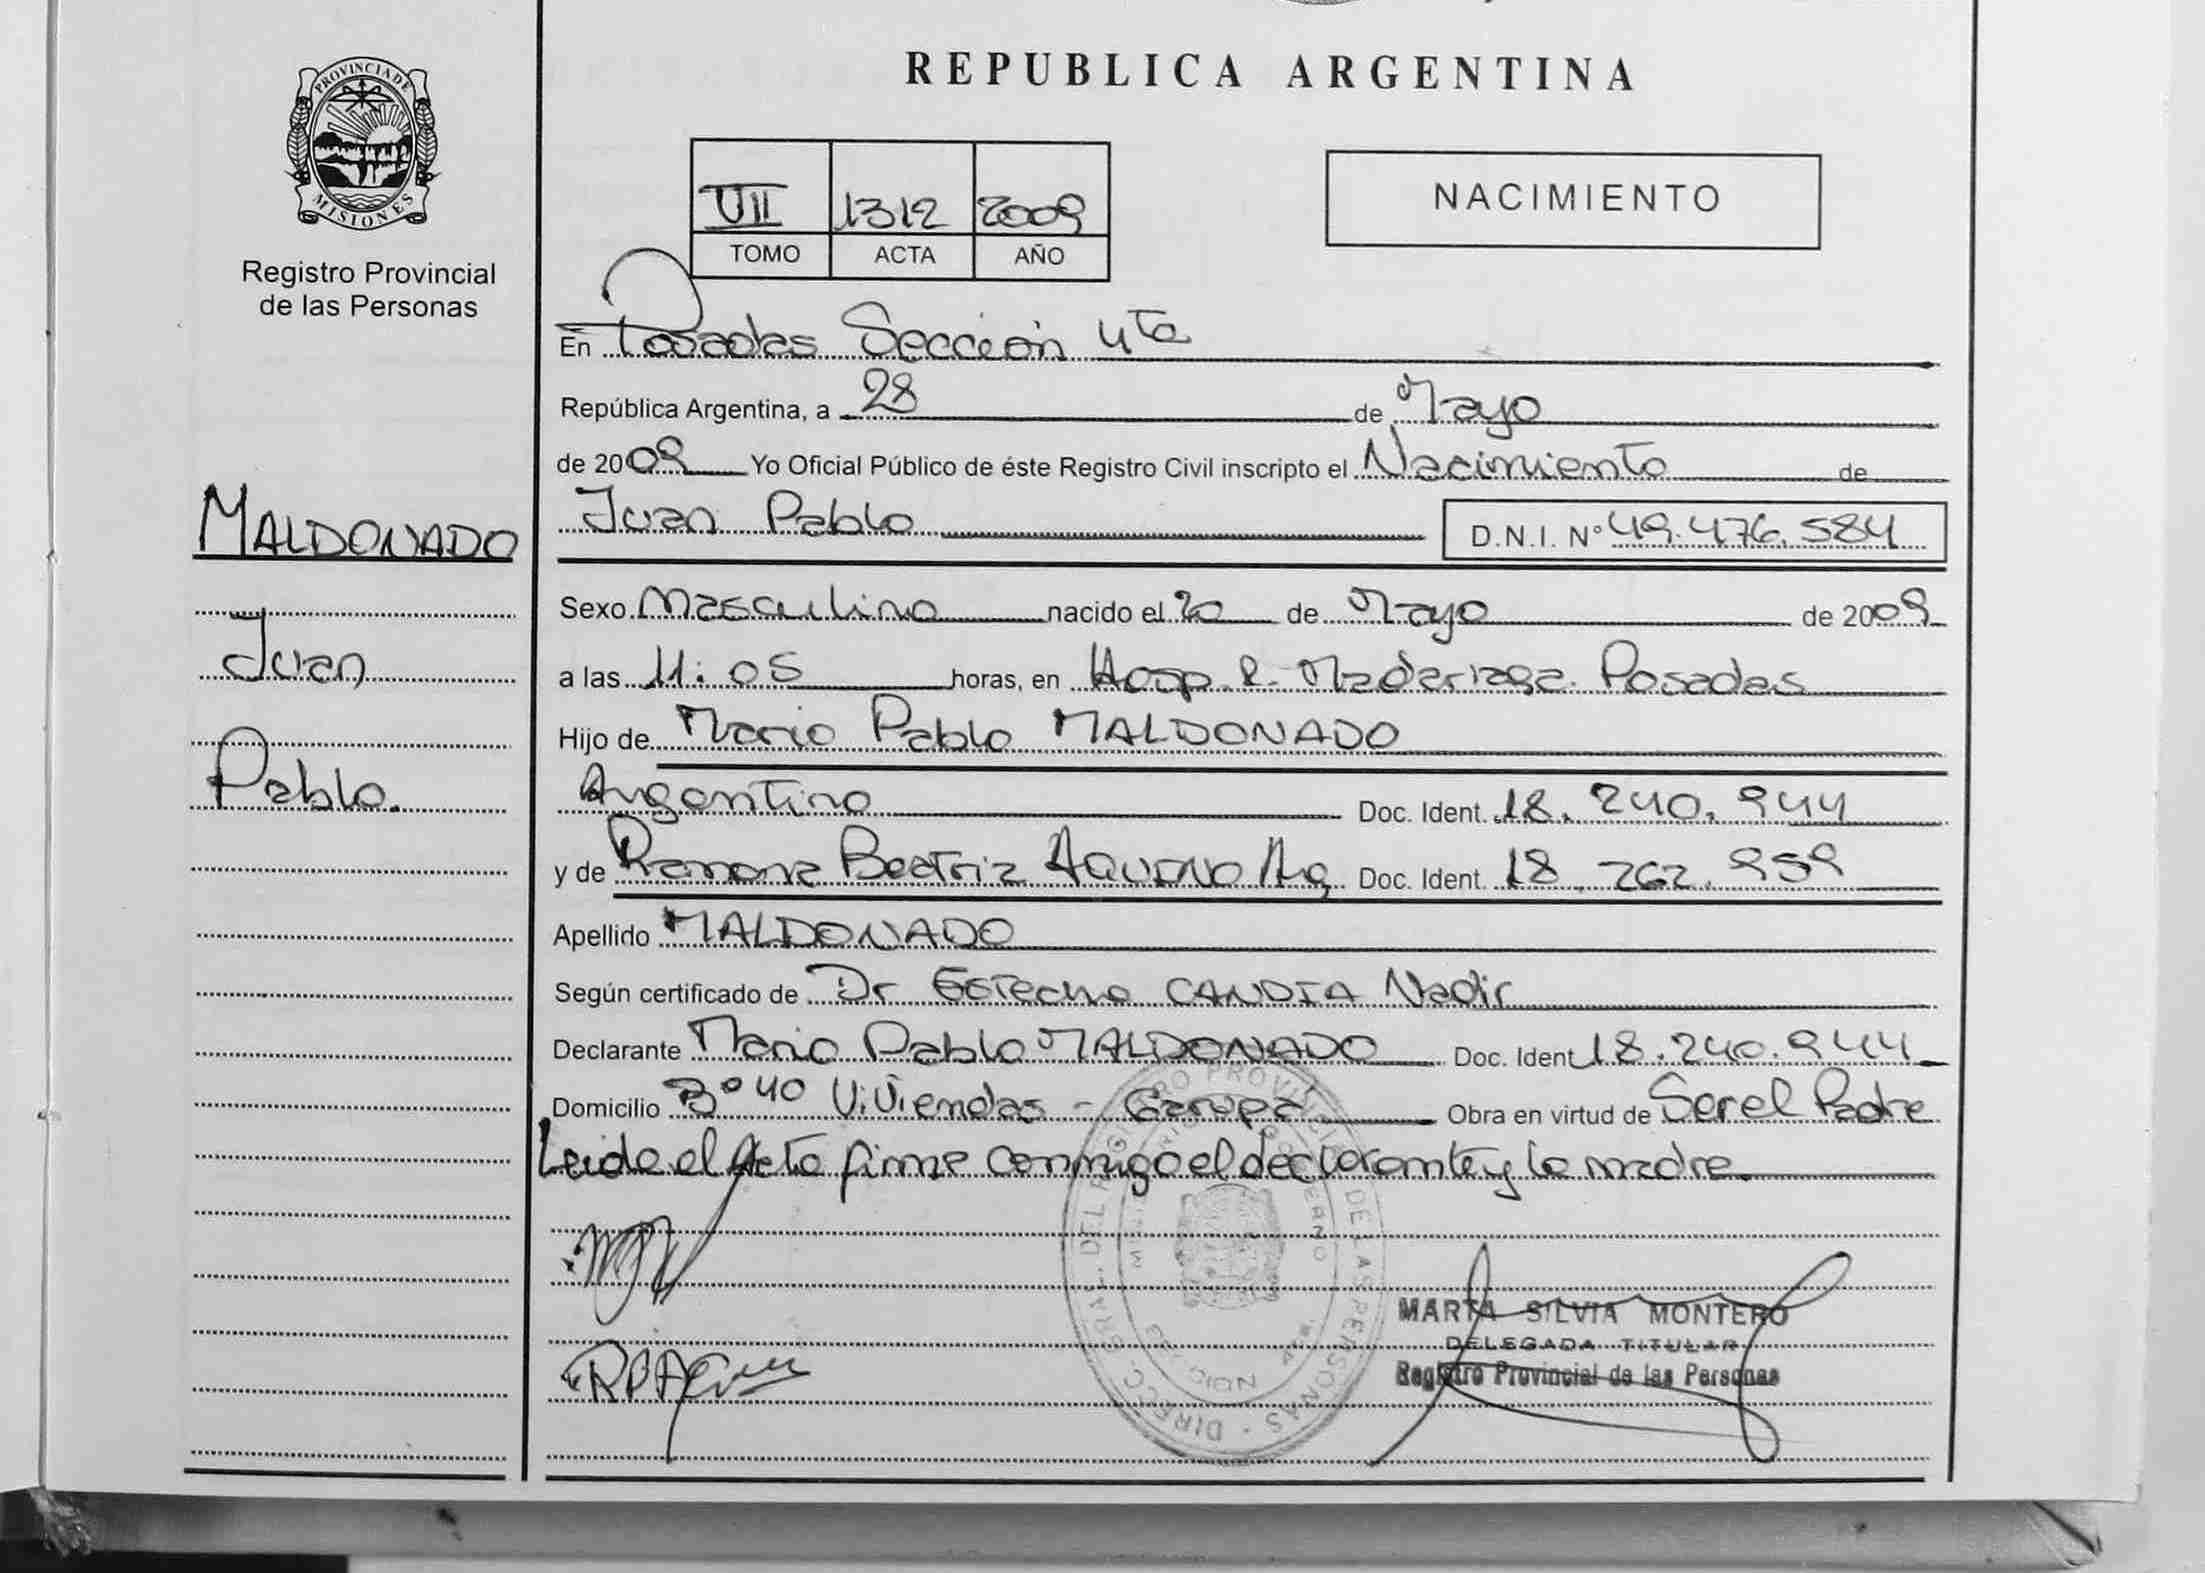 REPUBLICA ARGENTINA
PROVINCIA DE
MISIONES
Registro Provincial
de las Personas
VII 1312 2009
TOMO ACTA AÑO
NACIMIENTO
En Posadas Sección 4ta
República Argentina, a 28 de Mayo
de 2009 Yo Oficial Público de éste Registro Civil inscripto el Nacimiento de
Juan Pablo D.N.I. Nº 49.476.584
MALDONADO
Juan
Pablo.
Sexo Masculino nacido el 20 de Mayo de 2009
a las 11:05 horas, en Hosp R. Madariaga. Posadas
Hijo de Mario Pablo MALDONADO
Argentino Doc. Ident. 18.240.944
y de Ramona Beatriz AQUINO Arg Doc. Ident. 18.262.959
Apellido MALDONADO
Según certificado de Dr Esteche CANDIA Nadir
Declarante Mario Pablo MALDONADO Doc. Ident 18.240.944
Domicilio Bº 40 Viviendas - Garupá Obra en virtud de Ser el Padre
Leida el Acta firma conmigo el declarante y la madre.
MARTA SILVIA MONTERO
DELEGADA TITULAR
Registro Provincial de las Personas